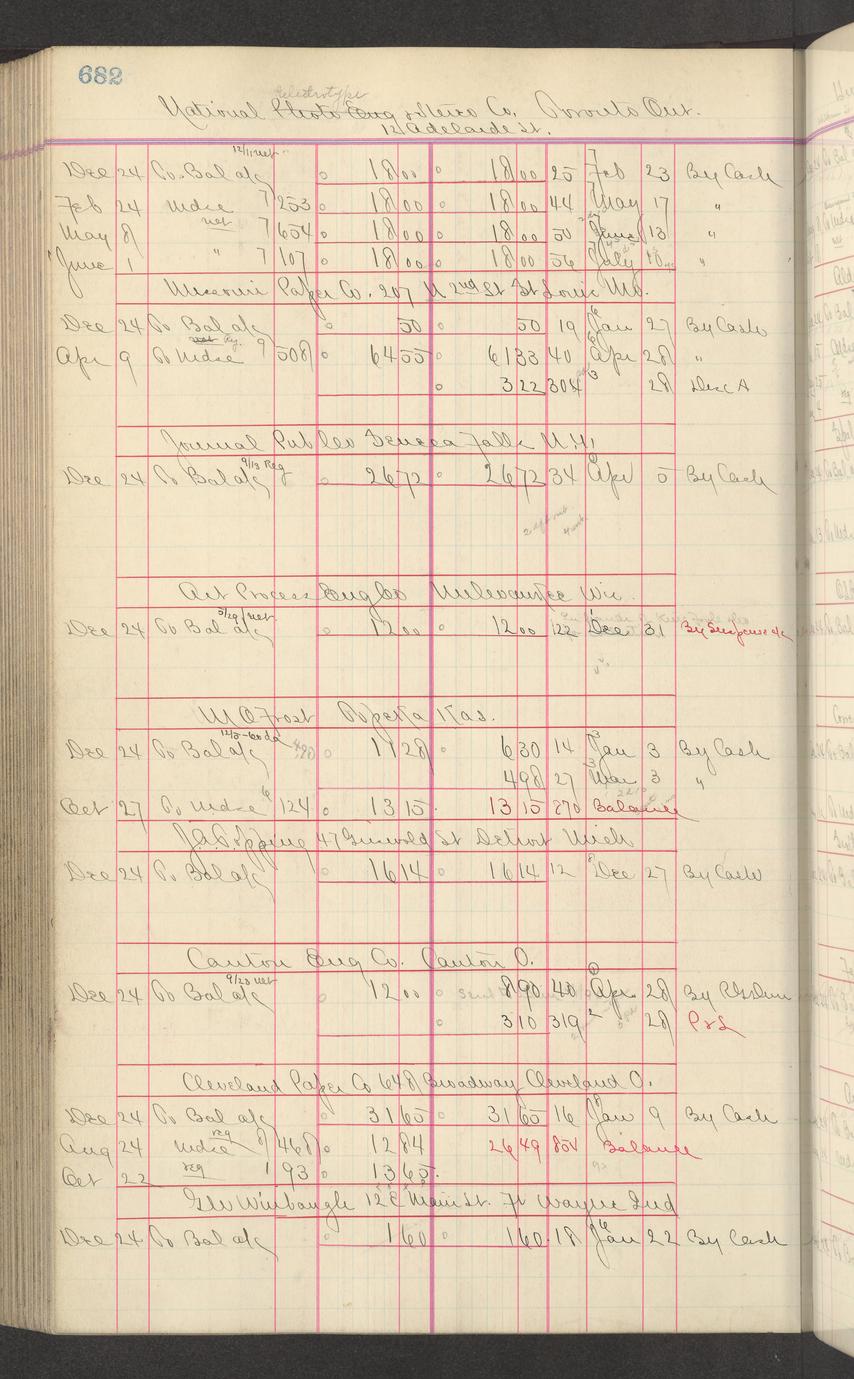 682
Electrotype
National Photo Eng & Stereo Co. Toronto Ont.
12 Adelaide St.
12/11 net
Dec 24 To Bal a/c 18 00 18 00 25 Feb 23 By Cash
Feb 24 Mdse 7 253 18 00 18 00 44 May 17 "
net
May 8 7 654 18 00 18 00 50 June 13 "
June 1 " 7 107 18 00 18 00 56 July "
Missouri Paper Co. 207 N 2nd St St Louis Mo.
Dec 24 To Bal a/c 50 50 19 Jan 27 By Cash
Apr 9 To Mdse 9 508 64 55 61 33 40 Apr 28 "
3 22 304 3 28 Disc A
Journal Pub Co Seneca Falls N.Y.
9/13 Reg
Dec 24 To Bal a/c 26 72 26 72 34 Apr 5 By Cash
Art Process Eng Co Milwaukee Wis.
5/29/net
Dec 24 To Bal a/c 12 00 12 00 122 Dec 31 By Suspense a/c
M O Frost Topeka Kas.
12/5-60 da
Dec 24 To Bal a/c 498 11 28 6 30 14 Jan 3 By Cash
4 98 27 Mar 3 "
Oct 27 To Mdse 6 124 13 15 13 15 270 Balance
47 Griswold St Detroit Mich
Dec 24 To Bal a/c 16 14 16 14 12 Dec 27 By Cash
Canton Eng Co. Canton O.
9/20 net
Dec 24 To Bal a/c 12 00 8 90 40 Apr 28 By R G Dun
3 10 319 2 28 P & L
Cleveland Paper Co 648 Broadway Cleveland O.
Dec 24 To Bal a/c 31 65 31 65 16 Jan 9 By Cash
reg
Aug 24 Mdse 8 468 12 84 26 49 854 Balance
Oct 22 reg 1 93 13 65
Geo Winbaugh 12 E Main St. Ft Wayne Ind
Dec 24 To Bal a/c 1 60 1 60 18 Jan 22 By Cash